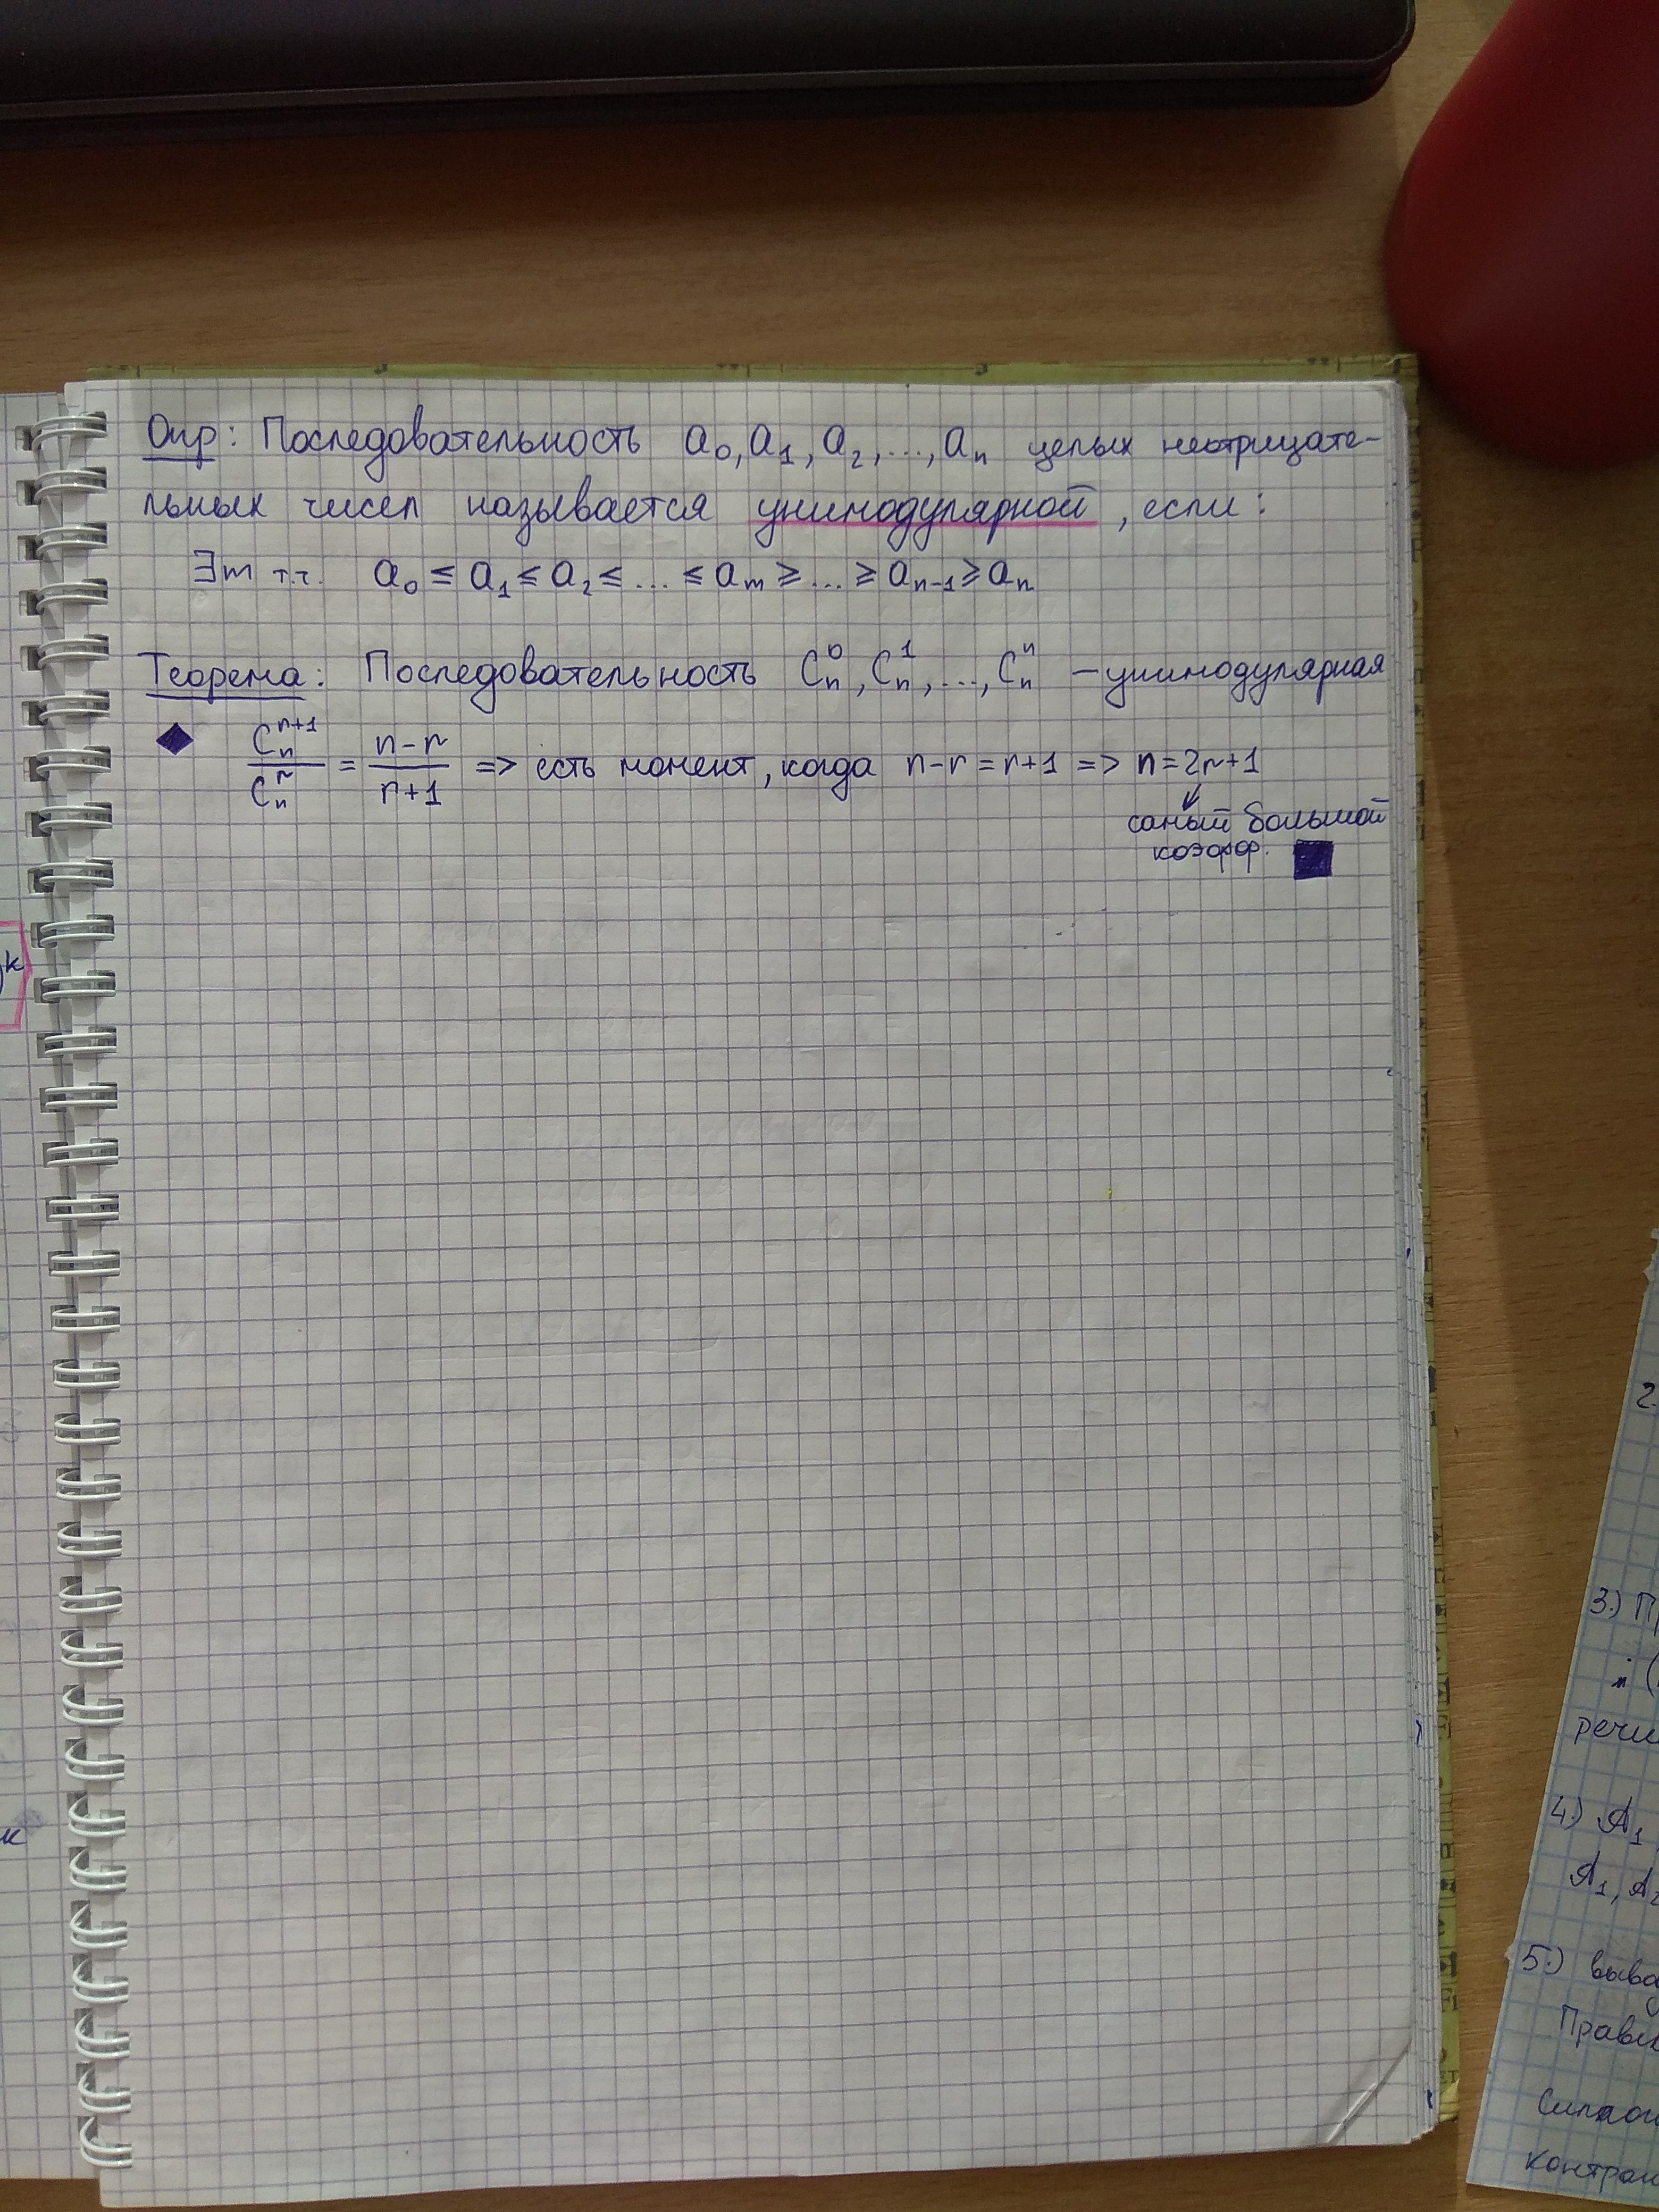 Опр: Последовательность a₀, a₁, a₂, ..., aₙ целых неотрицате-
льных чисел называется унимодулярной, если:
∃m т.ч. a₀ ≤ a₁ ≤ a₂ ≤ ... ≤ aₘ ≥ ... ≥ aₙ₋₁ ≥ aₙ
Теорема: Последовательность Cₙ⁰, Cₙ¹, ..., Cₙⁿ – унимодулярная
◆ Cₙʳ⁺¹/Cₙʳ = (n-r)/(r+1) => есть момент, когда n-r = r+1 => n = 2r+1
самый большой
коэфф. ■
к
к
2.
3.) П
речи
4.) A₁
A₁, A₂
5.) выво
Прави
контра